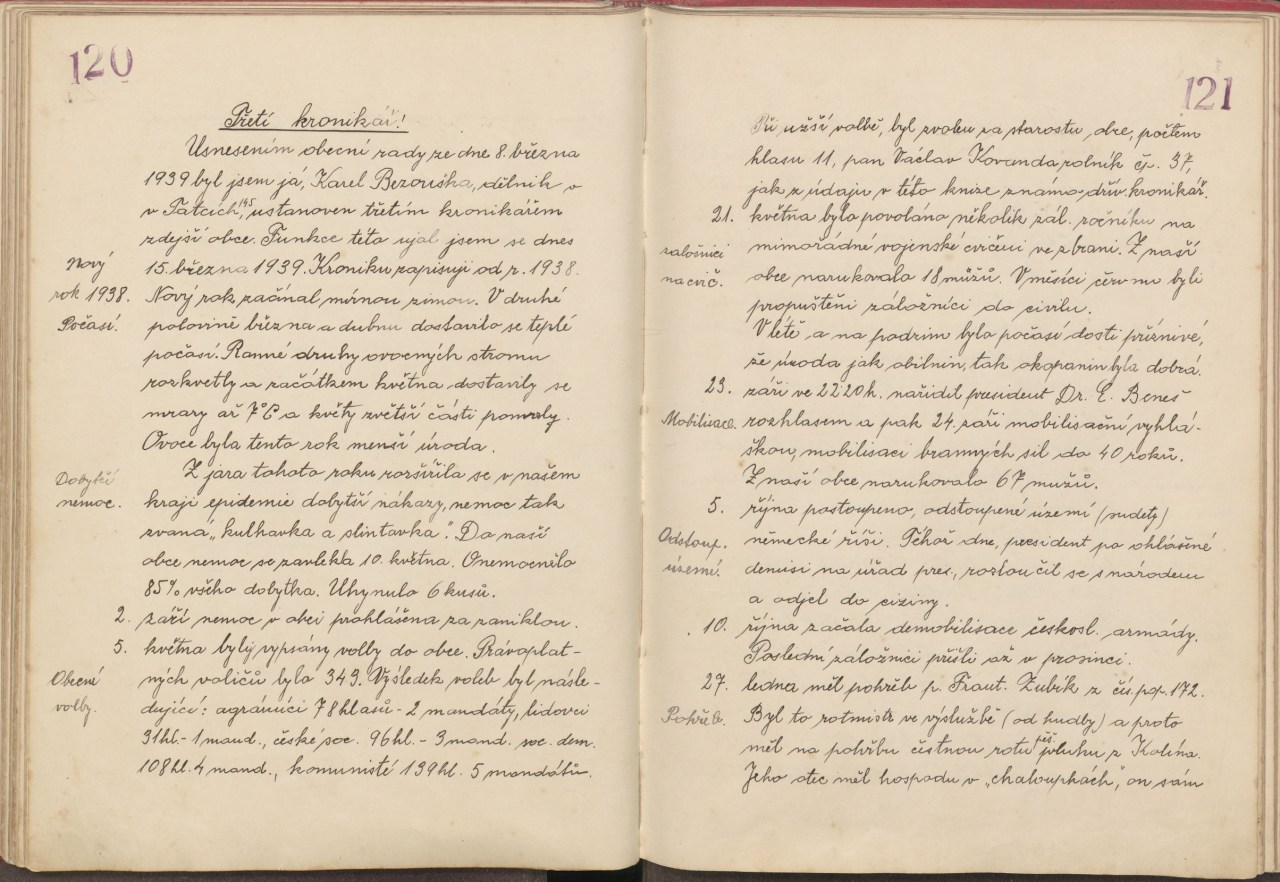 120
Třetí kronikář!
Usnesením obecní rady ze dne 8. března
1939 byl jsem já, Karel Bezouška, dělník
v Tatcích, 145 ustanoven třetím kronikářem
zdejší obce. Funkce této ujal jsem se dnes
Nový
15. března 1939. Kroniku zapisuji od r. 1938.
rok 1938.
Nový rok začínal mírnou zimou. V druhé
Počasí.
polovině března a dubnu dostavilo se teplé
počasí. Ranné druhy ovocných stromu
rozkvetly a začátkem května dostavily se
mrazy až 7°C a květy zvětší části pomrzly.
Ovoce byla tento rok menší úroda.
Z jara tohoto roku rozšířila se v našem
Dobytčí
nemoc.
kraji epidemie dobytší nákazy, nemoc tak
zvaná „kulhavka a slintavka". Do naší
obce nemoc se zavlekla 10. května. Onemocnělo
85% všeho dobytka. Uhynulo 6 kusů.
2. září nemoc v obci prohlášena za zaniklou.
5. května byly vypsány volby do obce. Právoplat-
Obecní
volby.
ných voličů bylo 349. Výsledek voleb byl násle-
dující: agrárníci 78 hlasů - 2 mandáty, lidovci
31 hl. - 1 mand., české soc. 96 hl. - 3 mand. soc. dem.
108 hl. 4 mand., komunisté 139 hl. 5 mandátů.
121
Při užší volbě, byl zvolen za starostu dne, počtem
hlasu 11, pan Václav Kovanda rolník čp. 37,
jak z údaju v této knize známo dřív. kronikář.
21. května bylo povoláno několik zál. ročníku na
záložníci
na cvič.
mimořádné vojenské cvičení ve zbrani. Z naší
obce narukovalo 18 můžů. V měsíci červnu byli
propuštěni záložníci do civilu.
V létě a na podzim bylo počasí dosti příznivé,
že úroda jak obilnin, tak okopanin byla dobrá.
23. září ve 22:20 h. nařídil president Dr. E. Beneš
Mobilisace.
rozhlasem a pak 24. září mobilisační vyhlá-
škou, mobilisaci branných sil do 40 roků.
Z naší obce narukovalo 67 mužů.
5. října postoupeno, odstoupené území (sudety)
Odstoup.
území.
německé říši. Téhož dne, president po ohlášené
demisi na úřad pres., rozloučil se s národem
a odjel do ciziny.
10. října začala demobilisace českosl. armády.
Poslední záložníci přišli až v prosinci.
27. ledna měl pohřeb p. Frant. Zubík z čís. pop. 172.
Pohřeb.
Byl to rotmistr ve výslužbě (od hudby) a proto
měl na pohřbu čestnou rotu pěš. pluku z Kolína.
Jeho otec měl hospodu v „chaloupkách", on sám